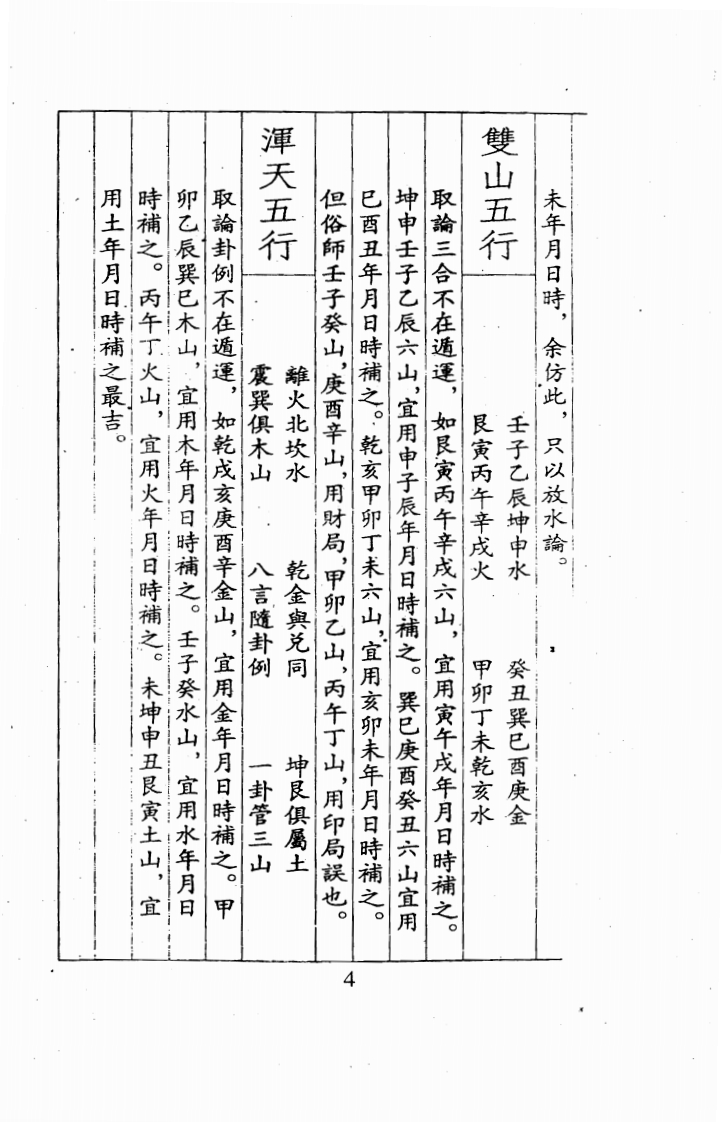 未年月日時，余仿此，只以放水論。
雙山五行
壬子乙辰坤申水　癸丑巽巳酉庚金
艮寅丙午辛戌火　甲卯丁未乾亥水
取論三合不在遁運，如艮寅丙午辛戌六山，宜用寅午戌年月日時補之。
坤申壬子乙辰六山，宜用申子辰年月日時補之。巽巳庚酉癸丑六山宜用
巳酉丑年月日時補之。乾亥甲卯丁未六山，宜用亥卯未年月日時補之。
但俗師壬子癸山，庚酉辛山，用財局，甲卯乙山，丙午丁山，用印局誤也。
渾天五行
離火北坎水　乾金與兌同　坤艮俱屬土
震巽俱木山　八言隨卦例　一卦管三山
取論卦例不在遁運，如乾戌亥庚酉辛金山，宜用金年月日時補之。甲
卯乙辰巽巳木山，宜用木年月日時補之。壬子癸水山，宜用水年月日
時補之。丙午丁火山，宜用火年月日時補之。未坤申丑艮寅土山，宜
用土年月日時補之最吉。
4